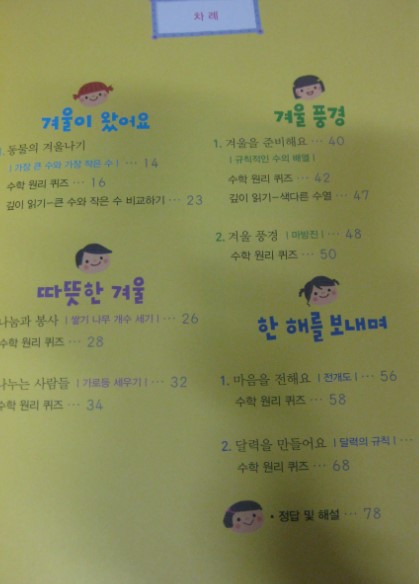 차례
겨울이 왔어요
1. 동물의 겨울나기
| 가장 큰 수와 가장 작은 수 | ··· 14
수학 원리 퀴즈 ··· 16
깊이 읽기-큰 수와 작은 수 비교하기 ··· 23
따뜻한 겨울
나눔과 봉사 | 쌓기 나무 개수 세기 | ··· 26
수학 원리 퀴즈 ··· 28
나누는 사람들 | 가로등 세우기 | ··· 32
수학 원리 퀴즈 ··· 34
겨울 풍경
1. 겨울을 준비해요 ··· 40
| 규칙적인 수의 배열 |
수학 원리 퀴즈 ··· 42
깊이 읽기-색다른 수열 ··· 47
2. 겨울 풍경 | 마방진 | ··· 48
수학 원리 퀴즈 ··· 50
한 해를 보내며
1. 마음을 전해요 | 전개도 | ··· 56
수학 원리 퀴즈 ··· 58
2. 달력을 만들어요 | 달력의 규칙 | ···
수학 원리 퀴즈 ··· 68
• 정답 및 해설 ··· 78